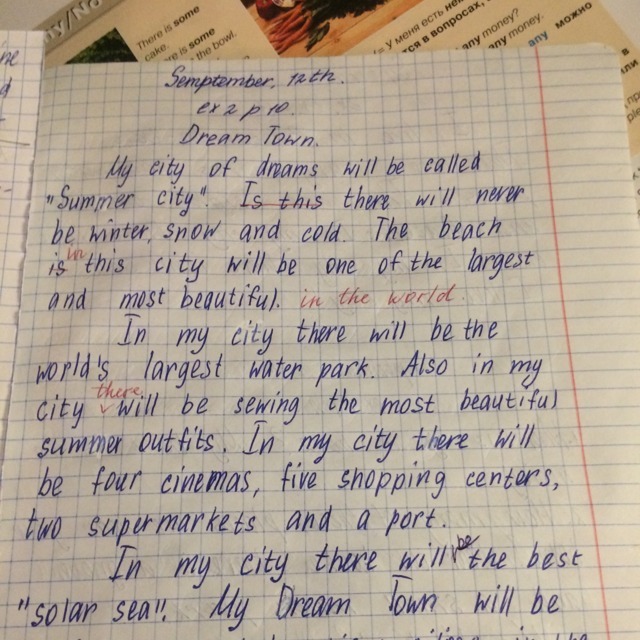 ty/No
There is some
cake.
There is some
the bowl.
= У меня есть
в вопросах,
any money?
any money.
any
можно
или
ne
d
Semptember, 12th.
ex 2 p 10.
Dream Town.
My city of dreams will be called
"Summer city". Is this there will never
be winter, snow and cold. The beach
is in this city will be one of the largest
and most beautiful. in the world.
In my city there will be the
world's largest water park. Also in my
city there will be sewing the most beautiful
summer outfits. In my city there will
be four cinemas, five shopping centers,
two supermarkets and a port.
In my city there will be the best
"solar sea". My Dream Town will be